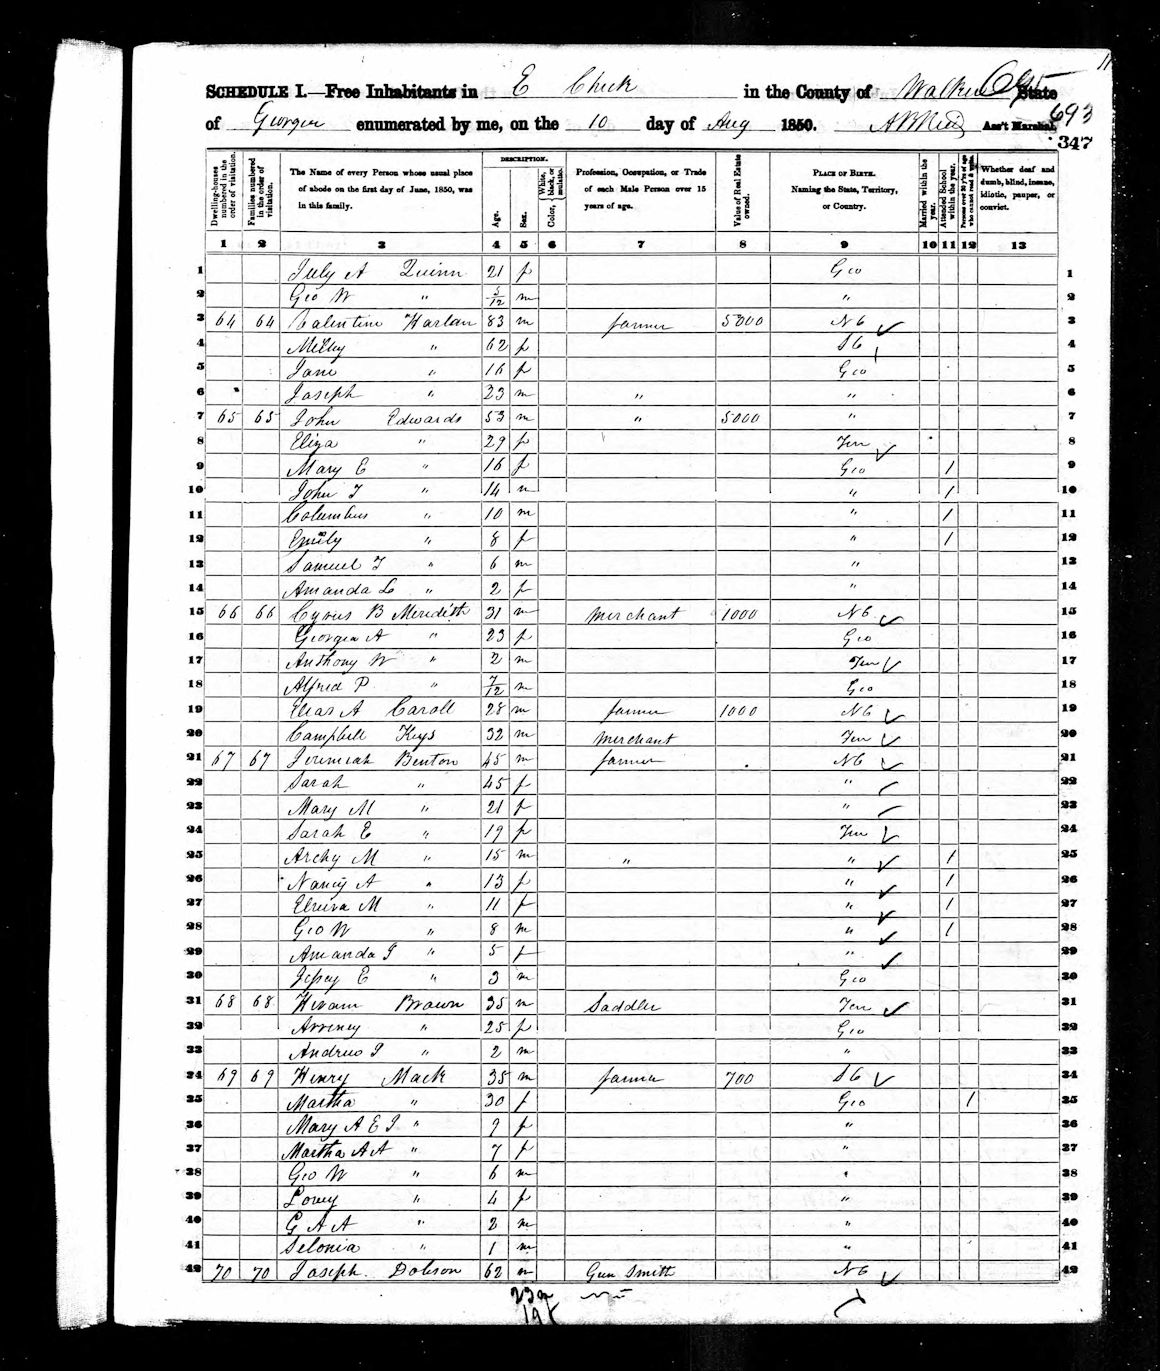 SCHEDULE I.—Free Inhabitants in E Chick in the County of Walker State
693
of Georgia enumerated by me, on the 10 day of Aug 1850. Ass't Marshal.
347
Dwelling-houses numbered in the order of visitation.
Families numbered in the order of visitation.
The Name of every Person whose usual place of abode on the first day of June, 1850, was in this family.
DESCRIPTION.
Age.
Sex.
Color, { White, black, or mulatto.
Profession, Occupation, or Trade of each Male Person over 15 years of age.
Value of Real Estate owned.
PLACE OF BIRTH. Naming the State, Territory, or Country.
Married within the year.
Attended School within the year.
Persons over 20 y'rs of age who cannot read & write.
Whether deaf and dumb, blind, insane, idiotic, pauper, or convict.
1 2 3 4 5 6 7 8 9 10 11 12 13
1 July A Quinn 21 f Geo 1
2 Geo W " 5/12 m " 2
3 64 64 Valentine Harlan 83 m farmer 5000 NC 3
4 Milly " 62 f SC 4
5 Jane " 16 f Geo 5
6 Joseph " 23 m " " 6
7 65 65 John Edwards 53 m " 5000 " 7
8 Eliza " 29 f Ten 8
9 Mary E " 16 f Geo 1 9
10 John T " 14 m " 1 10
11 Columbus " 10 m " 1 11
12 Emily " 8 f " 1 12
13 Samuel T " 6 m " 13
14 Amanda L " 2 f " 14
15 66 66 Cyrus B Meredith 31 m merchant 1000 NC 15
16 Georgia A " 23 f Geo 16
17 Anthony W " 2 m Ten 17
18 Alfred P " 7/12 m Geo 18
19 Elias A Caroll 28 m farmer 1000 NC 19
20 Campbell Keys 32 m merchant Ten 20
21 67 67 Jeremiah Benton 45 m farmer NC 21
22 Sarah " 45 f " 22
23 Mary M " 21 f " 23
24 Sarah E " 19 f Ten 24
25 Archy M " 15 m " " 1 25
26 Nancy A " 13 f " 1 26
27 M " 11 f " 1 27
28 Geo W " 8 m " 1 28
29 Amanda J " 5 f " 29
30 Jessey E " 3 m Geo 30
31 68 68 Hiram Brown 35 m Saddler Ten 31
32 " 25 f Geo 32
33 Andrew J " 2 m " 33
34 69 69 Henry Mack 35 m farmer 700 SC 34
35 Martha " 30 f Geo 1 35
36 Mary A E J " 9 f " 36
37 Martha A A " 7 f " 37
38 Geo W " 6 m " 38
39 " 4 f " 39
40 G A A " 2 m " 40
41 Selonia " 1 m " 41
42 70 70 Joseph Dobson 62 m Gun Smith NC 42
23
19